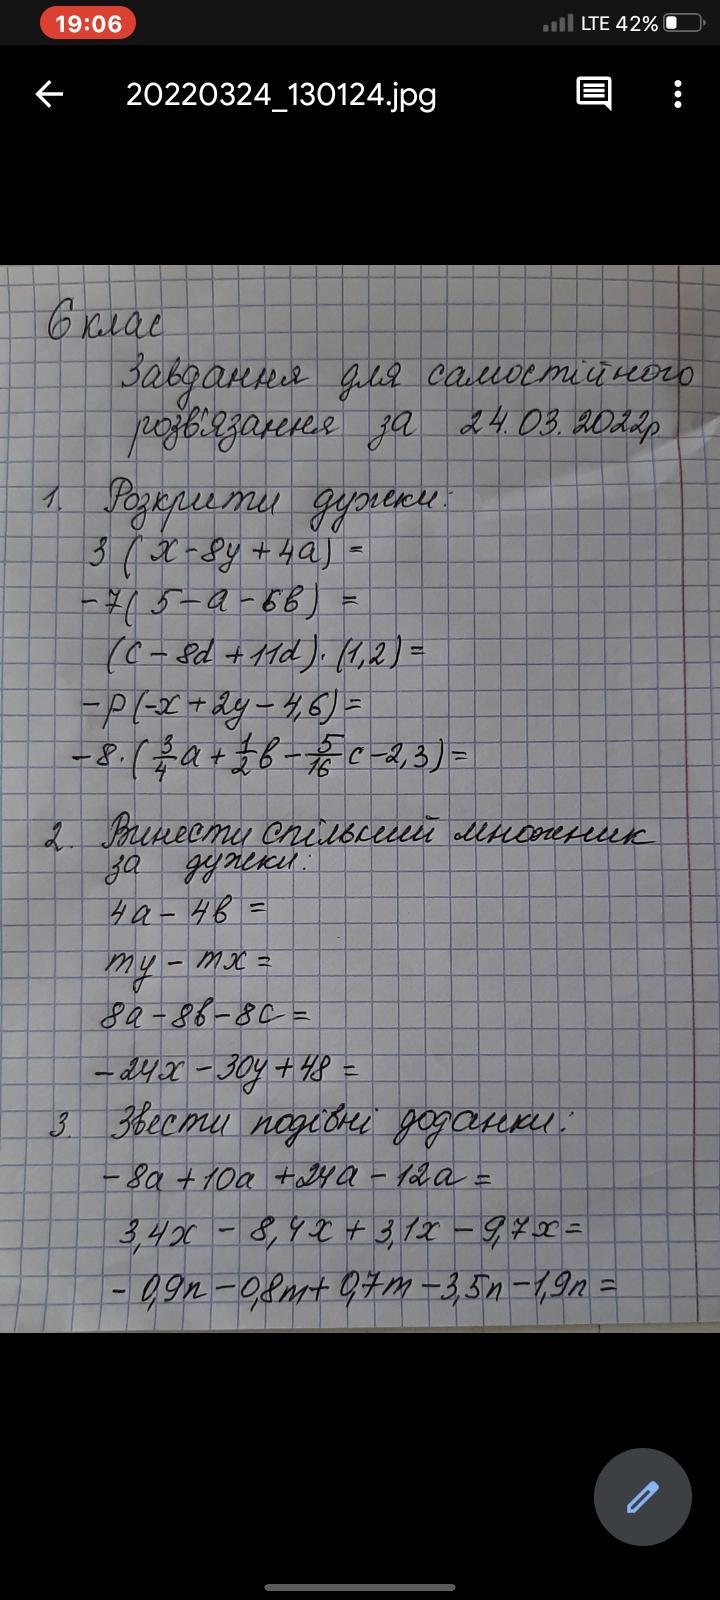 19:06
LTE 42%
20220324_130124.jpg
6 клас
Завдання для самостійного
розв'язання за 24.03.2022р.
1. Розкрити дужки:
3(x-8y+4a)=
-7(5-a-6в)=
(c-8d+11d)·(1,2)=
-p(-x+2y-4,6)=
-8·(3/4a+1/2в-5/16c-2,3)=
2. Винести спільний множник
за дужки:
4a-4в=
my-mx=
8a-8в-8c=
-24x-30y+48=
3. Звести подібні доданки:
-8a+10a+24a-12a=
3,4x-8,4x+3,1x-9,7x=
-0,9n-0,8m+0,7m-3,5n-1,9n=